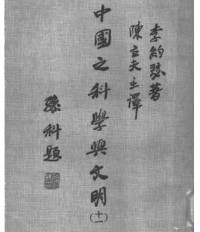 李約瑟著
陳立夫主譯
中國之科學與文明
(十一)
孫科題